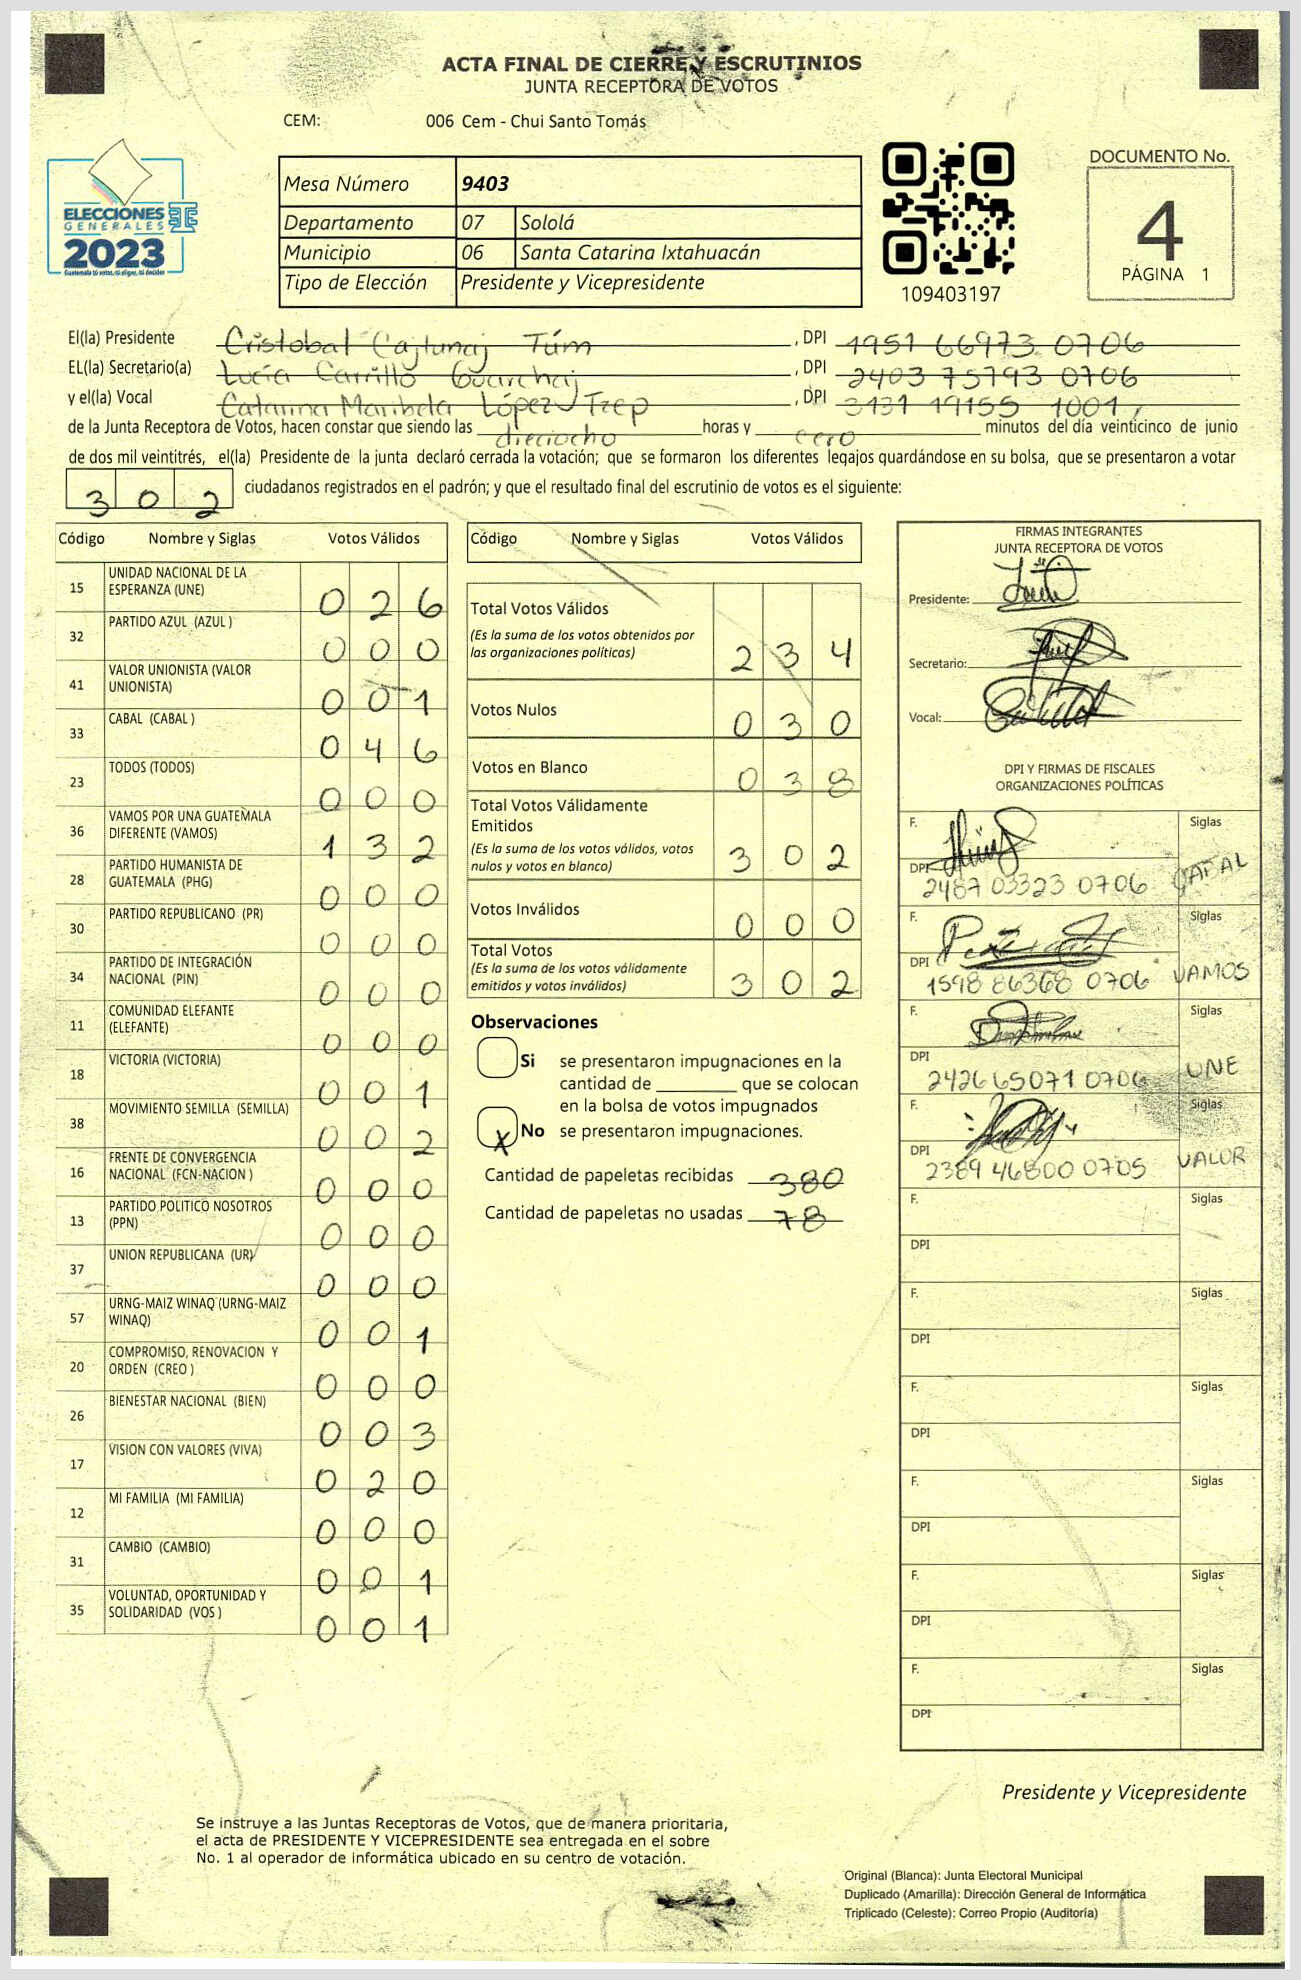 ACTA FINAL DE CIERRE Y ESCRUTINIOS
JUNTA RECEPTORA DE VOTOS
CEM: 006 Cem - Chui Santo Tomás
ELECCIONES
GENERALES
2023
Guatemala tú votas, tú eliges, tú decides
Mesa Número 9403
Departamento 07 Sololá
Municipio 06 Santa Catarina Ixtahuacán
Tipo de Elección Presidente y Vicepresidente
109403197
DOCUMENTO No.
4
PÁGINA 1
El(la) Presidente Cristobal Cajtunaj Túm, DPI 1951 66973 0706
EL(la) Secretario(a) Lucía Carrillo Guarchaj, DPI 2403 75793 0706
y el(la) Vocal Catarina Maribela López Tzep, DPI 3131 19155 1001,
de la Junta Receptora de Votos, hacen constar que siendo las dieciocho horas y cero minutos del día veinticinco de junio
de dos mil veintitrés, el(la) Presidente de la junta declaró cerrada la votación; que se formaron los diferentes legajos quardándose en su bolsa, que se presentaron a votar
302 ciudadanos registrados en el padrón; y que el resultado final del escrutinio de votos es el siguiente:
Código Nombre y Siglas Votos Válidos
15 UNIDAD NACIONAL DE LA ESPERANZA (UNE) 0 2 6
32 PARTIDO AZUL (AZUL ) 0 0 0
41 VALOR UNIONISTA (VALOR UNIONISTA) 0 0 1
33 CABAL (CABAL ) 0 4 6
23 TODOS (TODOS) 0 0 0
36 VAMOS POR UNA GUATEMALA DIFERENTE (VAMOS) 1 3 2
28 PARTIDO HUMANISTA DE GUATEMALA (PHG) 0 0 0
30 PARTIDO REPUBLICANO (PR) 0 0 0
34 PARTIDO DE INTEGRACIÓN NACIONAL (PIN) 0 0 0
11 COMUNIDAD ELEFANTE (ELEFANTE) 0 0 0
18 VICTORIA (VICTORIA) 0 0 1
38 MOVIMIENTO SEMILLA (SEMILLA) 0 0 2
16 FRENTE DE CONVERGENCIA NACIONAL (FCN-NACION ) 0 0 0
13 PARTIDO POLITICO NOSOTROS (PPN) 0 0 0
37 UNION REPUBLICANA (UR) 0 0 0
57 URNG-MAIZ WINAQ (URNG-MAIZ WINAQ) 0 0 1
20 COMPROMISO, RENOVACION Y ORDEN (CREO ) 0 0 0
26 BIENESTAR NACIONAL (BIEN) 0 0 3
17 VISION CON VALORES (VIVA) 0 2 0
12 MI FAMILIA (MI FAMILIA) 0 0 0
31 CAMBIO (CAMBIO) 0 0 1
35 VOLUNTAD, OPORTUNIDAD Y SOLIDARIDAD (VOS ) 0 0 1
Código Nombre y Siglas Votos Válidos
Total Votos Válidos 2 3 4
(Es la suma de los votos obtenidos por
las organizaciones políticas)
Votos Nulos 0 3 0
Votos en Blanco 0 3 8
Total Votos Válidamente
Emitidos 3 0 2
(Es la suma de los votos válidos, votos
nulos y votos en blanco)
Votos Inválidos 0 0 0
Total Votos 3 0 2
(Es la suma de los votos válidamente
emitidos y votos inválidos)
Observaciones
Si se presentaron impugnaciones en la
cantidad de ________ que se colocan
en la bolsa de votos impugnados
X No se presentaron impugnaciones.
Cantidad de papeletas recibidas 380
Cantidad de papeletas no usadas 78
FIRMAS INTEGRANTES
JUNTA RECEPTORA DE VOTOS
Presidente:
Secretario:
Vocal:
DPI Y FIRMAS DE FISCALES
ORGANIZACIONES POLÍTICAS
F. Siglas
DPI 2487 03323 0706
F. Siglas
DPI 1598 86368 0706 VAMOS
F. Siglas
DPI 2426 65071 0706 UNE
F. Siglas
DPI 2389 46800 0705 VALOR
F. Siglas
DPI
F. Siglas
DPI
F. Siglas
DPI
F. Siglas
DPI
F. Siglas
DPI
F. Siglas
DPI
Presidente y Vicepresidente
Se instruye a las Juntas Receptoras de Votos, que de manera prioritaria,
el acta de PRESIDENTE Y VICEPRESIDENTE sea entregada en el sobre
No. 1 al operador de informática ubicado en su centro de votación.
Original (Blanca): Junta Electoral Municipal
Duplicado (Amarilla): Dirección General de Informática
Triplicado (Celeste): Correo Propio (Auditoría)